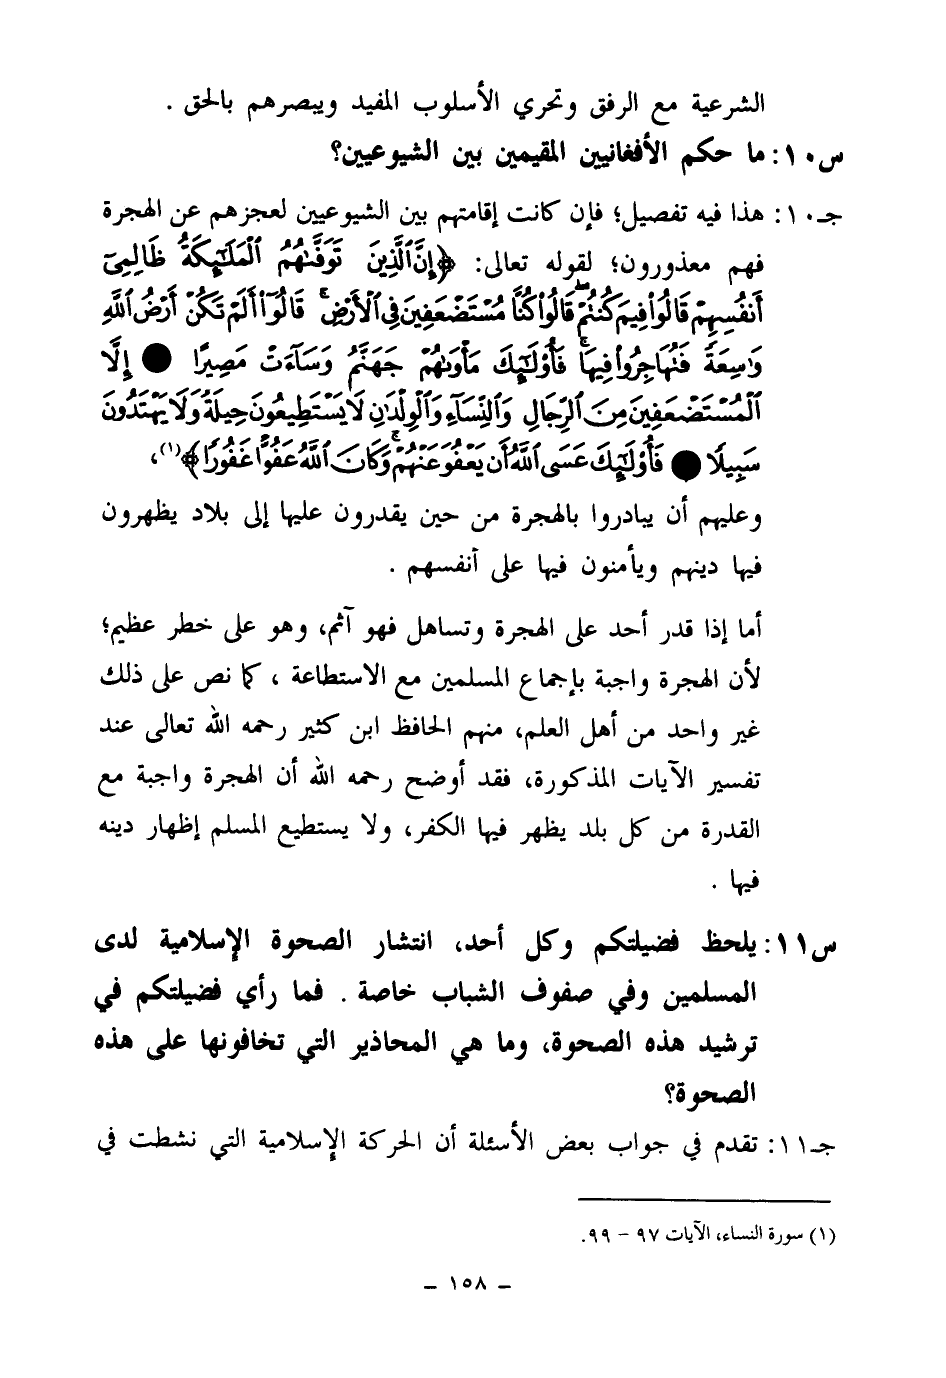 الشرعية مع الرفق وتحري الأسلوب المفيد ويبصرهم بالحق .
س١٠: ما حكم الأفغانيين المقيمين بين الشيوعيين؟
جـ١٠: هذا فيه تفصيل؛ فإن كانت إقامتهم بين الشيوعيين لعجزهم عن الهجرة
فهم معذورون؛ لقوله تعالى: ﴿إِنَّ ٱلَّذِينَ تَوَفَّىٰهُمُ ٱلْمَلَـٰٓئِكَةُ ظَالِمِىٓ
أَنفُسِهِمْ قَالُوا۟ فِيمَ كُنتُمْ ۖ قَالُوا۟ كُنَّا مُسْتَضْعَفِينَ فِى ٱلْأَرْضِ ۚ قَالُوٓا۟ أَلَمْ تَكُنْ أَرْضُ ٱللَّهِ
وَٰسِعَةً فَتُهَاجِرُوا۟ فِيهَا ۚ فَأُو۟لَـٰٓئِكَ مَأْوَىٰهُمْ جَهَنَّمُ ۖ وَسَآءَتْ مَصِيرًا ● إِلَّا
ٱلْمُسْتَضْعَفِينَ مِنَ ٱلرِّجَالِ وَٱلنِّسَآءِ وَٱلْوِلْدَٰنِ لَا يَسْتَطِيعُونَ حِيلَةً وَلَا يَهْتَدُونَ
سَبِيلًا ● فَأُو۟لَـٰٓئِكَ عَسَى ٱللَّهُ أَن يَعْفُوَ عَنْهُمْ ۚ وَكَانَ ٱللَّهُ عَفُوًّا غَفُورًا﴾(١)،
وعليهم أن يبادروا بالهجرة من حين يقدرون عليها إلى بلاد يظهرون
فيها دينهم ويأمنون فيها على أنفسهم .
أما إذا قدر أحد على الهجرة وتساهل فهو آثم، وهو على خطر عظيم؛
لأن الهجرة واجبة بإجماع المسلمين مع الاستطاعة ، كما نص على ذلك
غير واحد من أهل العلم، منهم الحافظ ابن كثير رحمه الله تعالى عند
تفسير الآيات المذكورة، فقد أوضح رحمه الله أن الهجرة واجبة مع
القدرة من كل بلد يظهر فيها الكفر، ولا يستطيع المسلم إظهار دينه
فيها .
س١١: يلحظ فضيلتكم وكل أحد، انتشار الصحوة الإسلامية لدى
المسلمين وفي صفوف الشباب خاصة . فما رأي فضيلتكم في
ترشيد هذه الصحوة، وما هي المحاذير التي تخافونها على هذه
الصحوة؟
جـ١١: تقدم في جواب بعض الأسئلة أن الحركة الإسلامية التي نشطت في
(١) سورة النساء، الآيات ٩٧ – ٩٩.
– ١٥٨ –